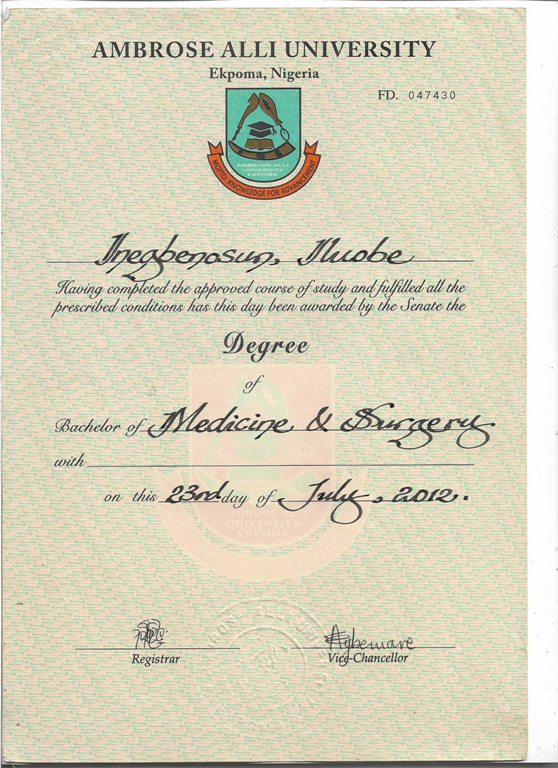 AMBROSE ALLI UNIVERSITY
Ekpoma, Nigeria
FD. 047430
AMBROSE ALLI
UNIVERSITY
EKPOMA
MOTTO: KNOWLEDGE FOR ADVANCEMENT
Inegbenosun, Iluobe
Having completed the approved course of study and fulfilled all the
prescribed conditions has this day been awarded by the Senate the
Degree
of
Bachelor of Medicine & Surgery
with
on this 23rd day of July, 2012.
UNIVERSITY
EKPOMA
Agbemare
Registrar
Vice-Chancellor